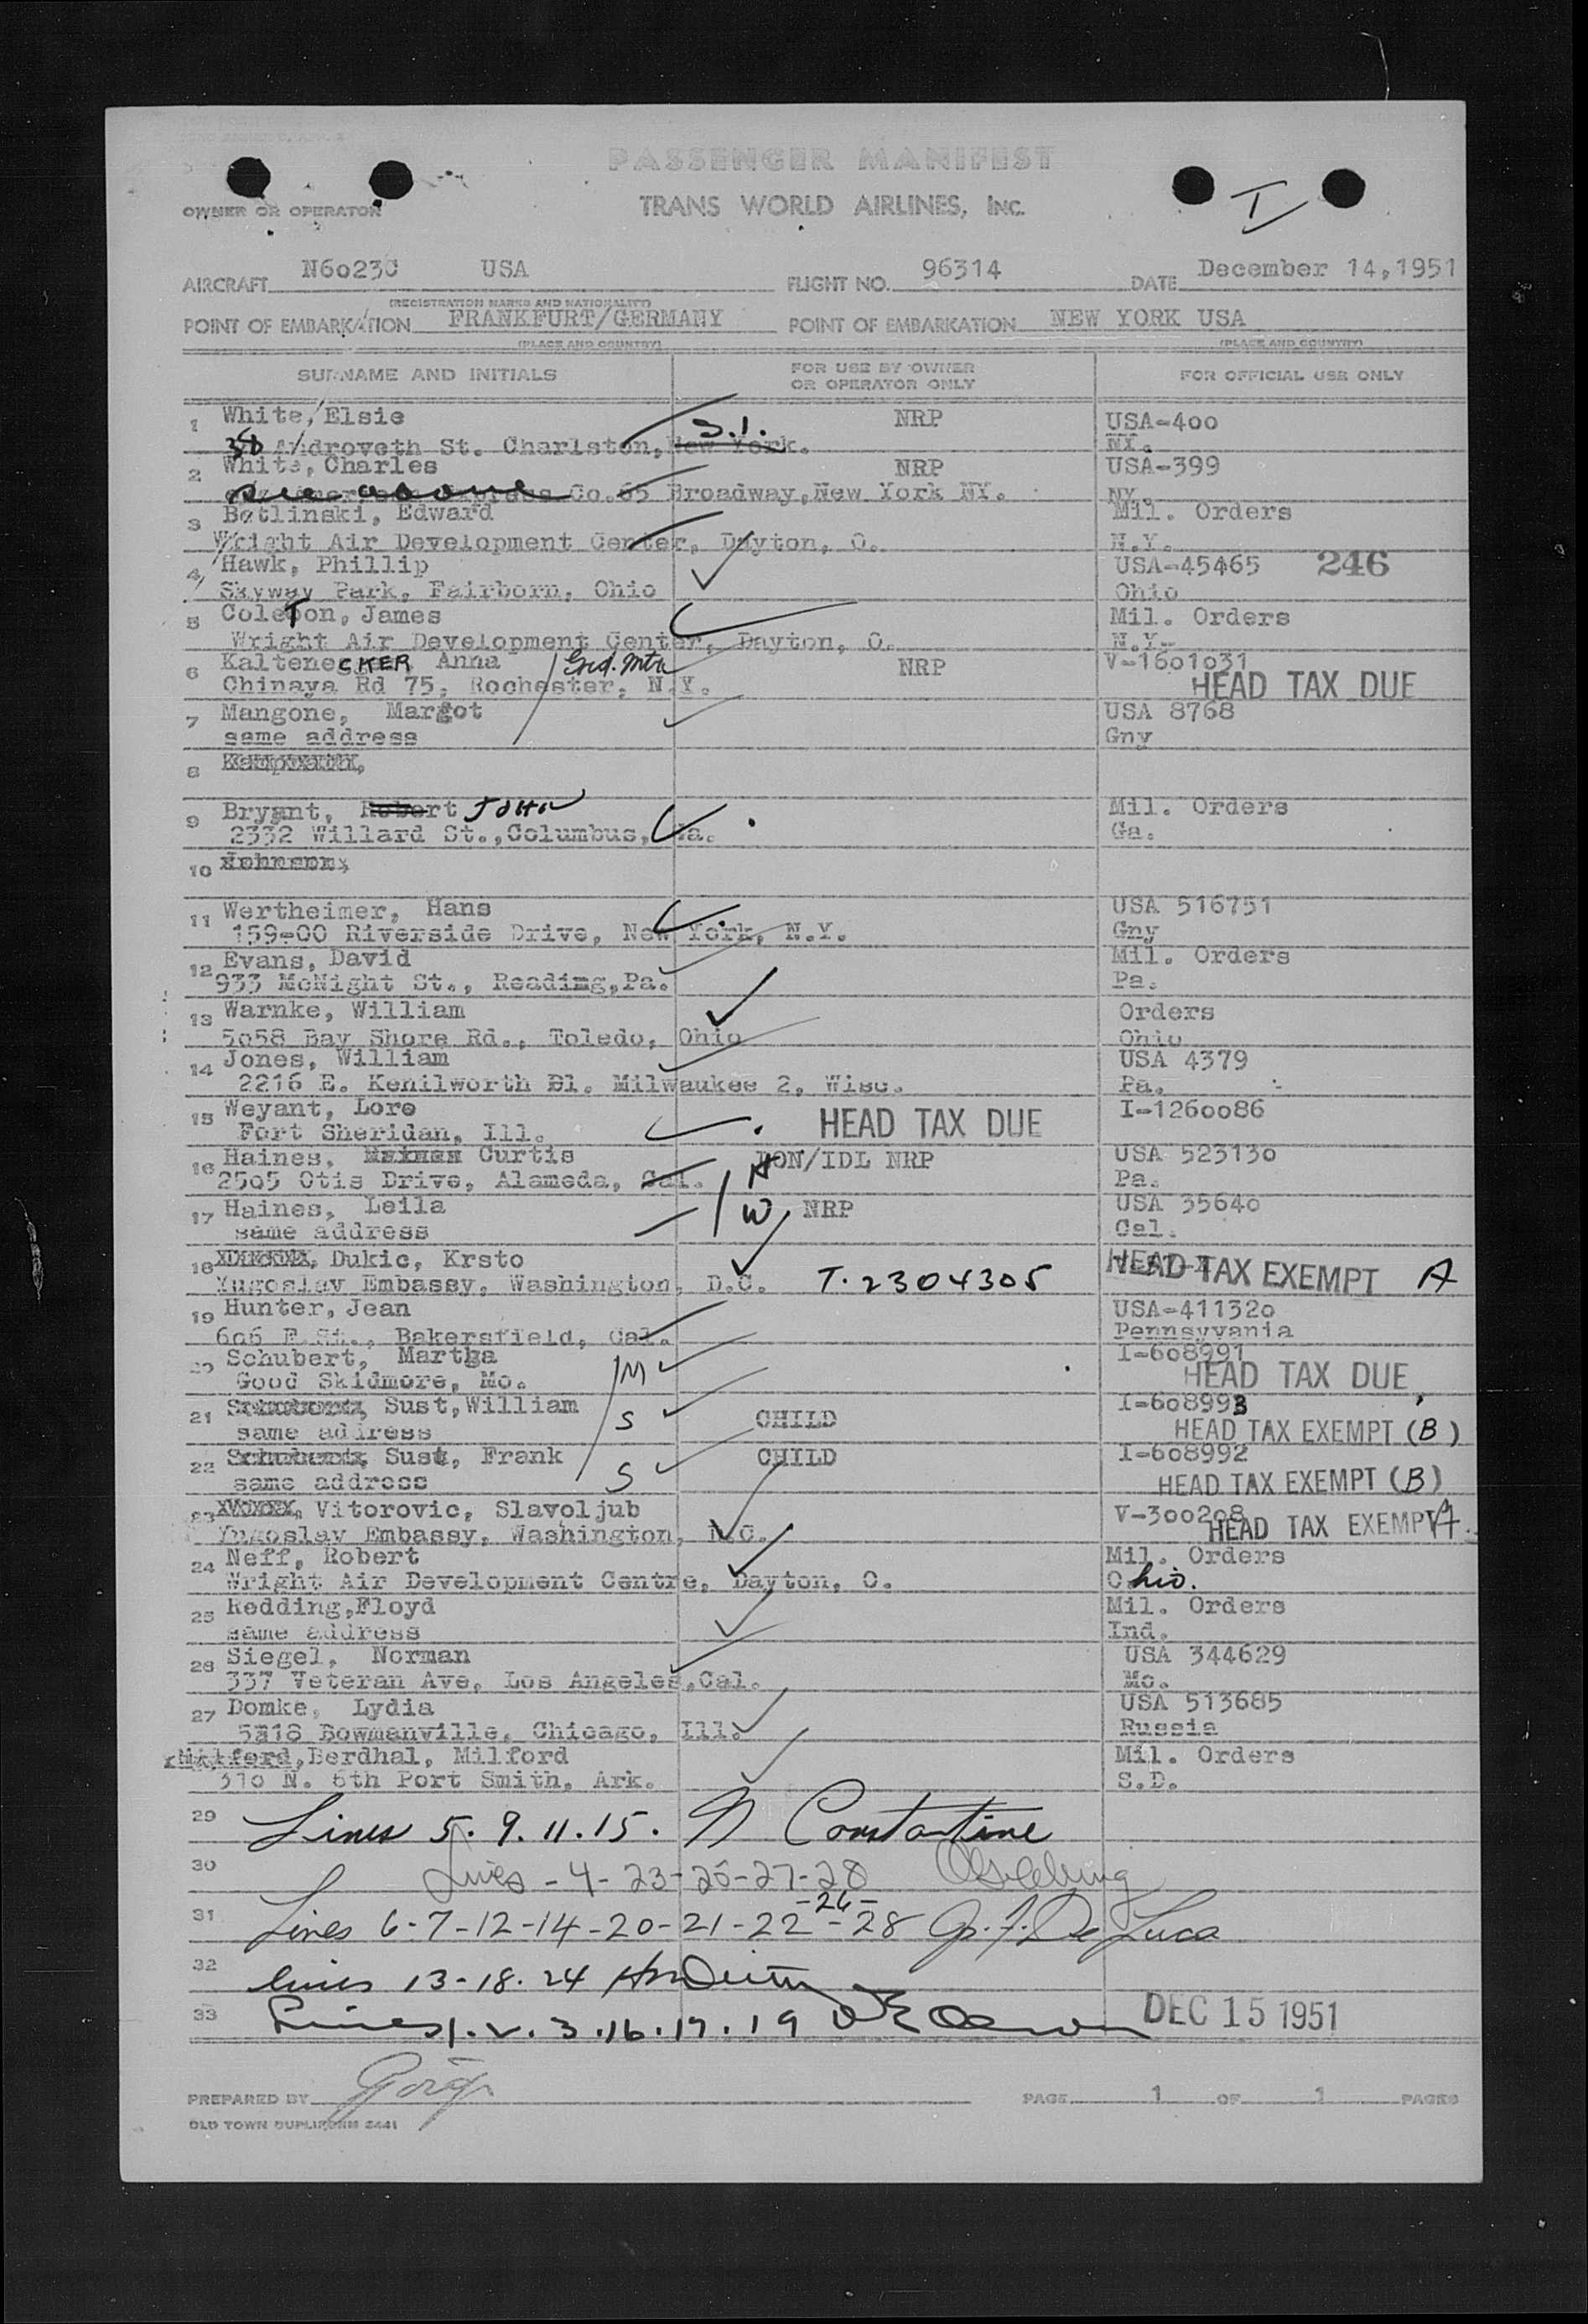 PASSENGER MANIFEST
OWNER OR OPERATOR TRANS WORLD AIRLINES, INC. I
AIRCRAFT N6023C USA FLIGHT NO. 96314 DATE December 14,1951
(REGISTRATION MARKS AND NATIONALITY)
POINT OF EMBARKATION FRANKFURT/GERMANY POINT OF EMBARKATION NEW YORK USA
(PLACE AND COUNTRY) (PLACE AND COUNTRY)
SURNAME AND INITIALS FOR USE BY OWNER OR OPERATOR ONLY FOR OFFICIAL USE ONLY
1 White, Elsie NRP USA-400
38 Androveth St. Charlston, New York. S.I. NY.
2 White, Charles NRP USA-399
see above Co. 65 Broadway, New York NY. NY.
3 Betlinski, Edward Mil. Orders
Wright Air Development Center, Dayton, O. N.Y.
4 Hawk, Phillip USA-45465 246
Skyway Park, Fairborn, Ohio Ohio
5 ColeTon, James Mil. Orders
Wright Air Development Center, Dayton, O. N.Y.
6 KalteneCKER Anna Grd. Mtr NRP V-1601031
Chinaya Rd 75, Rochester, N.Y. HEAD TAX DUE
7 Mangone, Margot USA 8768
same address Gny
8
9 Bryant, Robert JOHN Mil. Orders
2332 Willard St.,Columbus, Ga. Ga.
10 Johnson,
11 Wertheimer, Hans USA 516751
159-00 Riverside Drive, New York, N.Y. Gny
12 Evans, David Mil. Orders
933 McNight St., Reading,Pa. Pa.
13 Warnke, William Orders
5058 Bay Shore Rd., Toledo, Ohio Ohio
14 Jones, William USA 4379
2216 E. Kenilworth Bl. Milwaukee 2, Wisc. Pa.
15 Weyant, Lore HEAD TAX DUE I-1260086
Fort Sheridan, Ill.
16 Haines, Curtis H LON/IDL NRP USA 523130
2505 Otis Drive, Alameda, Cal. Pa.
17 Haines, Leila W NRP USA 35640
same address Cal.
18 Dukic, Krsto HEAD TAX EXEMPT A
Yugoslav Embassy, Washington, D.C. T-2304305
19 Hunter, Jean USA-411320
606 E.St., Bakersfield, Cal. Pennsyvania
20 Schubert, Martha M I-608991
Good Skidmore, Mo. HEAD TAX DUE
21 Sust,William S CHILD I-608993
same address HEAD TAX EXEMPT (B)
22 Sust, Frank S CHILD I-608992
same address HEAD TAX EXEMPT (B)
23 Vitorovic, Slavoljub V-300208
Yugoslav Embassy, Washington, D.C. HEAD TAX EXEMPT A
24 Neff, Robert Mil. Orders
Wright Air Development Centre, Dayton, O. Ohio.
25 Redding,Floyd Mil. Orders
same address Ind.
26 Siegel, Norman USA 344629
337 Veteran Ave, Los Angeles,Cal. Mo.
27 Domke, Lydia USA 513685
5218 Bowmanville, Chicago, Ill. Russia
Milford,Berdhal, Milford Mil. Orders
310 N. 6th Port Smith, Ark. S.D.
29 Lines 5. 9. 11. 15. N Constantine
30 Lines - 4 - 23 - 25 - 27 - 28
31 Lines 6-7-12-14-20-21-22-26-28 G. F. De Luca
32 lines 13-18. 24
33 Lines 1. 2. 3. 16. 17. 19 DEC 15 1951
PREPARED BY PAGE 1 OF 1 PAGES
OLD TOWN DUPLIFORM 5441